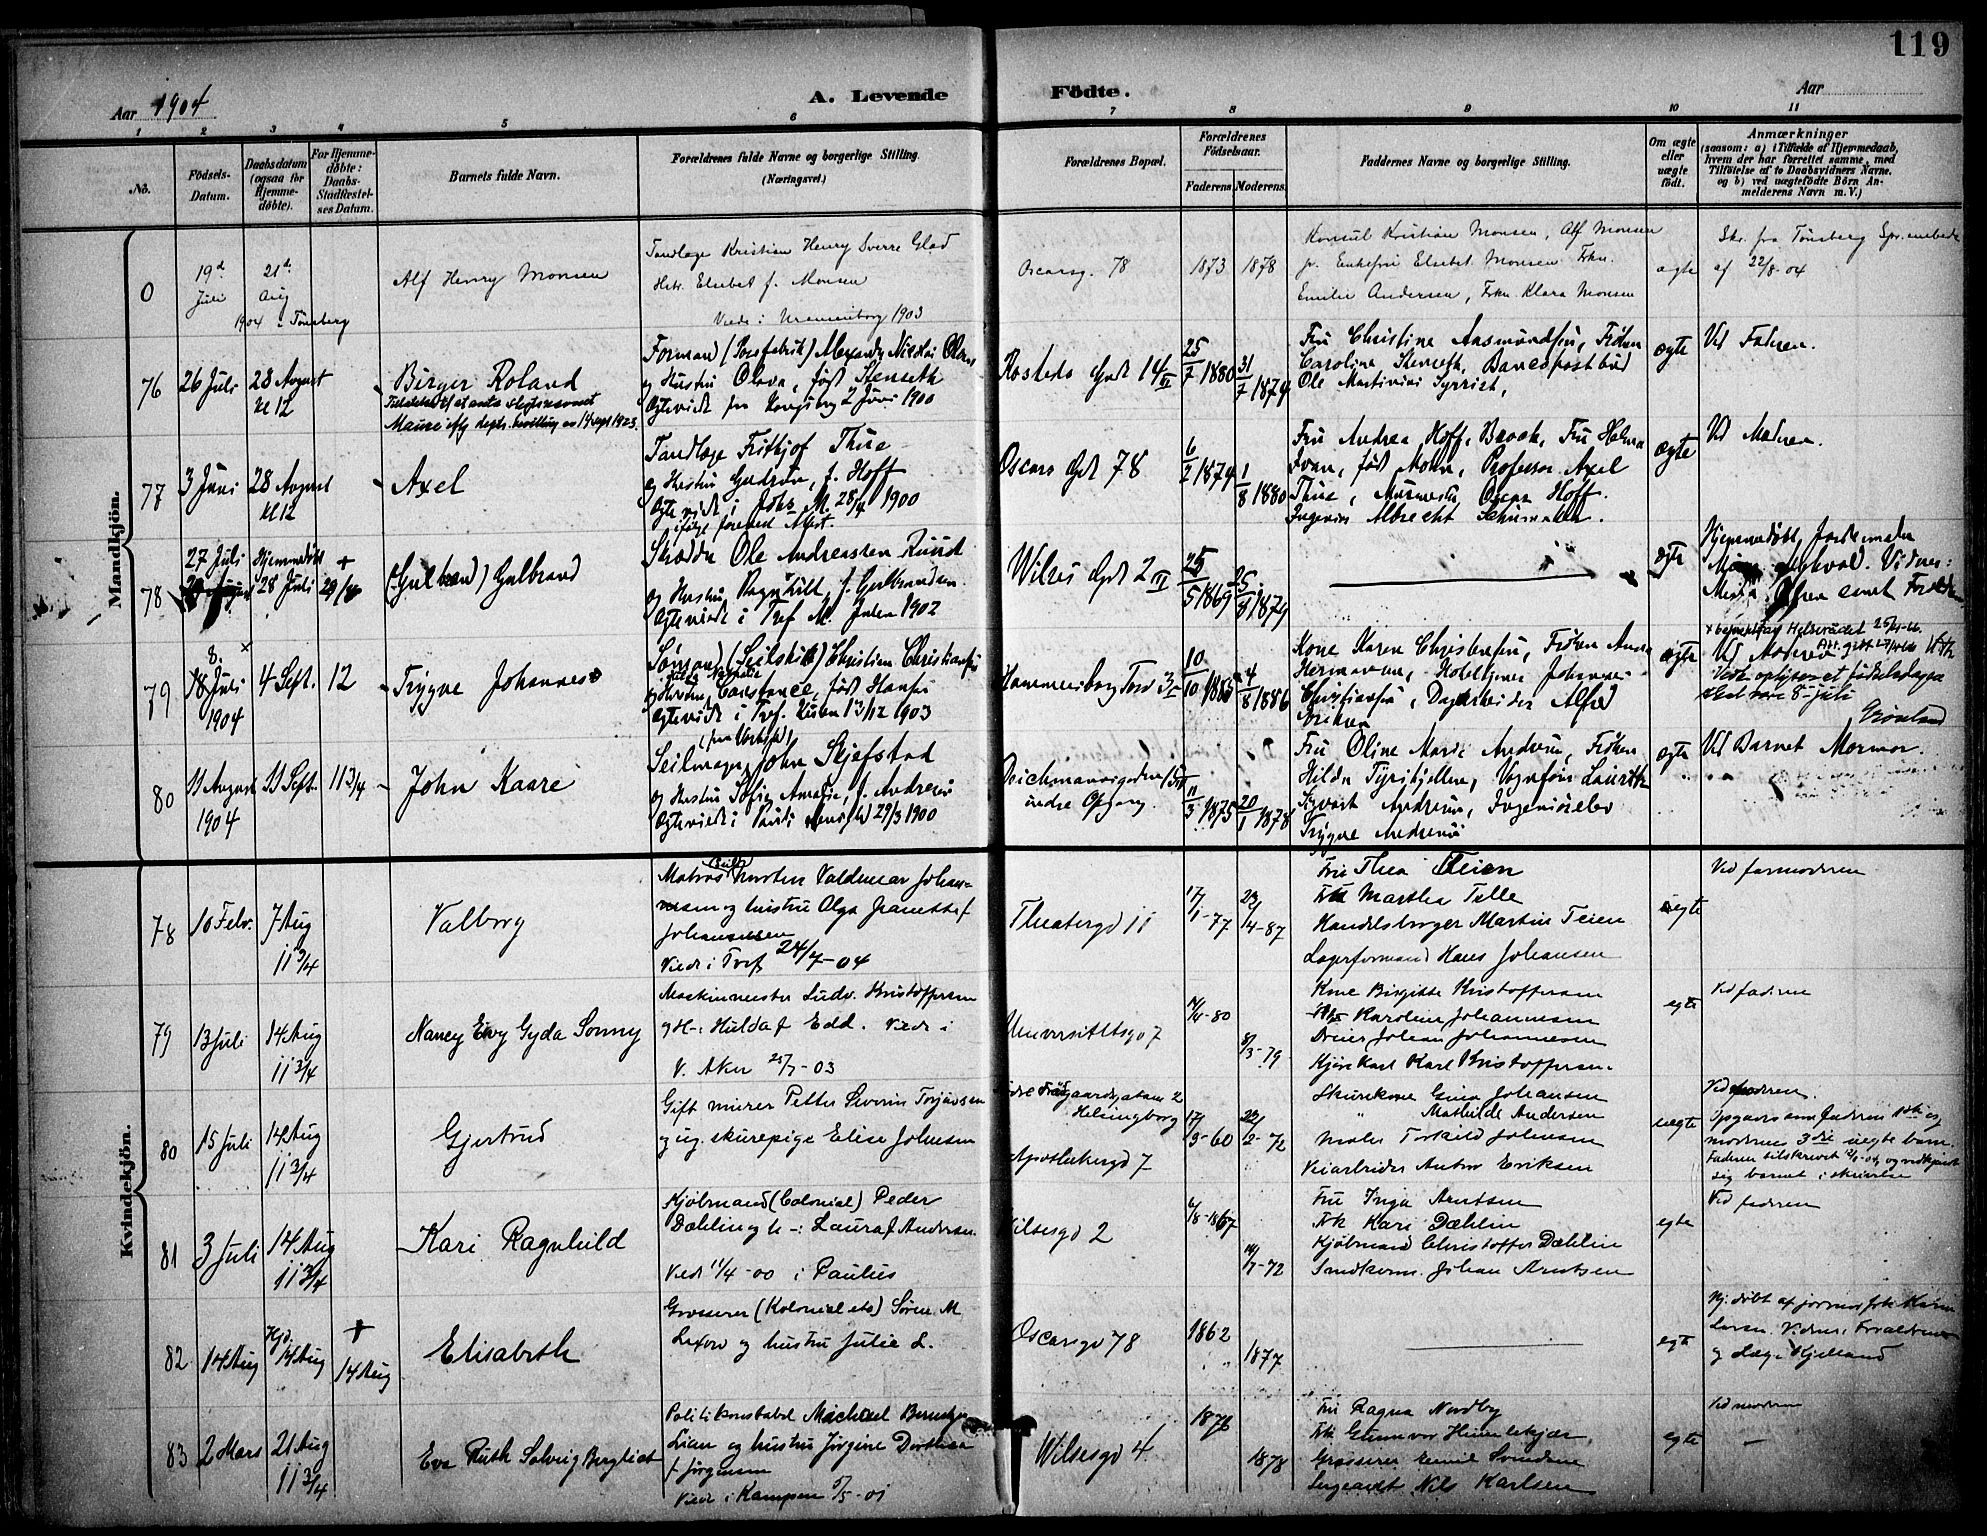 119
Aar 1904
A. Levende Födte.
Aar
1 2 3 4 5 6 7 8 9 10 11
No.
Födsels-Datum.
Daabsdatum (ogsaa for Hjemme-döbte).
For Hjemme-döbte: Daabs-Stadfæstel-ses Datum.
Barnets fulde Navn.
Forældrenes fulde Navne og borgerlige Stilling.
(Næringsvei.)
Forældrenes Bopæl.
Forældrenes Fødselsaar.
Faderens. Moderens.
Faddernes Navne og borgerlige Stilling.
Om ægte eller uægte født.
Anmærkninger
(saasom: a) i Tilfælde af Hjemmedaab, hvem der har forrettet samme, med Tilføielse af to Daabsvidners Navne. og b) ved uægtefødte Börn An-melderens Navn m. V.)
Mandkjön.
0
19d Juli
21d Aug 1904 i Tønsberg
Alf Henry Monsen
Tandlæge Kristian Henry Sverre Glad
Hstr. Elsebet f. Monsen
Viede i Uranienborg 1903
Oscarsg. 78
1873
1878
Konsul Kristian Monsen, Alf Monsen
jr. Enkefru Elsebet Monsen Frkn.
Emilie Andersen, Frkn. Klara Monsen
ægte
Skr. fra Tønsberg Spr.embede
af 22/8-04
76
26 Juli
28 August Kl 12
Birger Roland
Alexander Nikolai Olsen
og Hustru Olava, født Stenseth
Ægteviede fra Kongsberg 2 Juni 1900
Rosteds Gade 14 III
25/7 1880
31/7 1874
Fru Christine Aasmundsen, Frøken
Caroline Stenseth, Banepostbud
Ole Martinius
ægte
Ved Faderen.
77
3 Juni
28 August Kl 12
Axel
Tandlæge Fritjof Thue
og Hustru Gudrun, f. Hoff
Ægteviede i Johs M. 28/4 1900
Oscars Gade 78
6/2 1874
1/8 1880
Fru Andrea Hoff, Fru Helma
født Mohn, Professor Axel
Thue, Oscar Hoff.
Ingeniør Albrecht
ægte
Ved Moderen.
78
27 Juli
Hjemmedøbt 28 Juli
+ 29/8
(Gulbrand) Gulbrand
Skrædder Ole Andreassen Ruud
og Hustru Ragnhild, f. Gulbrandsen
Ægteviede i Tref M. 1902
Wilses Gade 2 III
25/5 1869
25/8 1879
ægte
Hjemmedøbt, Jordemoder
Vidner:
samt Forældre
79
8.
18 Juli 1904
4 Sept.
12
Trygve Johannes
Sømand (Seilskib) Christian Christiansen
og Hustru Constance, født Hansen
Ægteviede i Tref. Kirken 13/12 1903
Hammersborg Torv 3
10/10 1885
4/8 1886
Kone Karen Christensen, Frøken Anna
Hermansen, Hoteltjener Johannes
Christiansen, Dagarbeider Alfred
Eriksen
ægte
Ved Moderen
oplyser at fødselsdagen
skal være 8 juli
Grønland
80
11 August 1904
11 Sept.
11 3/4
John Kaare
Seilmager John Skjefstad
og Hustru Sofie Amalie, f. Andresen
Ægteviede i Pauli Menighed 29/3 1900
Deichmannsgaden
indre Opgang.
11/3 1875
20/1 1878
Fru Oline Marie Andresen, Frøken
Hilda Tyristjellen, Vognfører Lauritz
Andresen, Ingeniørelev
Trygve Andresen
ægte
Ved Barnets Mormor.
Kvindekjön.
78
10 Febr.
7 Aug 11 3/4
Valborg
Matros Morten Valdemar Johan-
nesen og hustru Olga Jeanette f
Johannesen
Viede i Tref 24/7-04
Theatergd 11
17/1-77
23/14-87
Fru Thea Teien
Frk Martha Telle
Handelsborger Martin Teien
Lagerformand Hans Johansen
uegte
Ved farmoderen
79
13 Juli
14 Aug 11 3/4
Nancy Evy Gyda Sonny
Maskinmester Ludv. Kristoffersen
og H-: Hulda f Edd. Viede i
V. Aker 25/7-03
Universitetsgd 7
14/4-80
8/3-79
Kone Birgitte Kristoffersen
Frk Karoline Johannesen
Dreier Johan Johannesen
Kjørekarl Karl Kristoffersen.
egte
Ved faderen
80
15 Juli
14 Aug 11 3/4
Gjertrud
Gift murer Petter Severin Torjussen
og ug. skurepige Elise Johnsen
Helsingborg
Apothekergd 7
17/3-60
22/2-72
Skurekone Gina Johansen
" Mathilde Andersen
Maler Torkild Johnsen
Veiarbeider Anton Eriksen
uegte
Ved moderen.
Opgaves som faderens 1ste og
moderens 3die uegte barn.
Faderen tilskrevet og vedkjendt
sig barnet i skrivelse
81
3 Juli
14 Aug 11 3/4
Kari Ragnhild
Kjøbmand (Colonial) Peder
Dæhlin og h-: Laura f Andersen
Viede 11/4-00 i Paulus
Wilsesgd 2
6/8-1867
14/7-72
Fru Inga Arntsen
Frk Kari Dæhlin
Kjøbmand Christoffer Dæhlin
Johan Arntsen
egte
Ved faderen
82
14 Aug
Hjd. 14 Aug
+ 14 Aug
Elisabeth
Grosserer (Kolonial etc) Søren M
Lexow og hustru Julie L.
Oscarsgd 78
1862
1877
egte
Hj. døbt af jormor frk Karen
Larsen. Vidner: Forældrene
og Læge Kjelland
83
2 Mars
21 Aug 11 3/4
Eva Ruth Solveig Bergliot
Politikonstabel Michael Berntsen
Lian og hustru Jørgine Dorthea
f Jørgensen
Viede i Kampen 5/5-01
Wilsesgd 4
1876
1878
Fru Ragna Nordby
Frk Gunnvor
Grosserer Emil
Sergeant Nils Karlsen
egte
Ved moderen